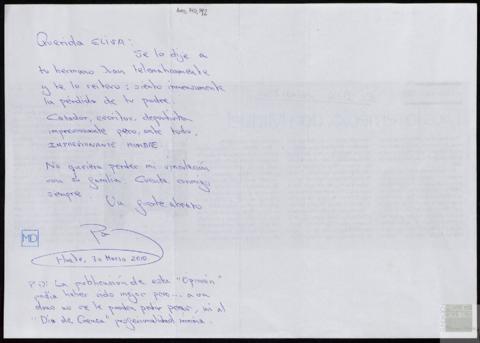 Querida ELISA:
Se lo dije a
tu hermano Juan telemáticamente
y te lo reitero: siento inmensamente
la pérdida de tu padre.
Cazador, escritor, deportista
impresionante pero, ante todo,
IMPRESIONANTE HOMBRE.
No quisiera perder mi vinculación
con su familia. Cuenta conmigo
siempre.
Un fuerte abrazo
MD
30 Marzo 2010
P.D: La publicación de este "Opinión"
podía haber sido mejor pero... a un
no se le pueden pedir peras, ni al
"Día de Cuenca" profesionalidad